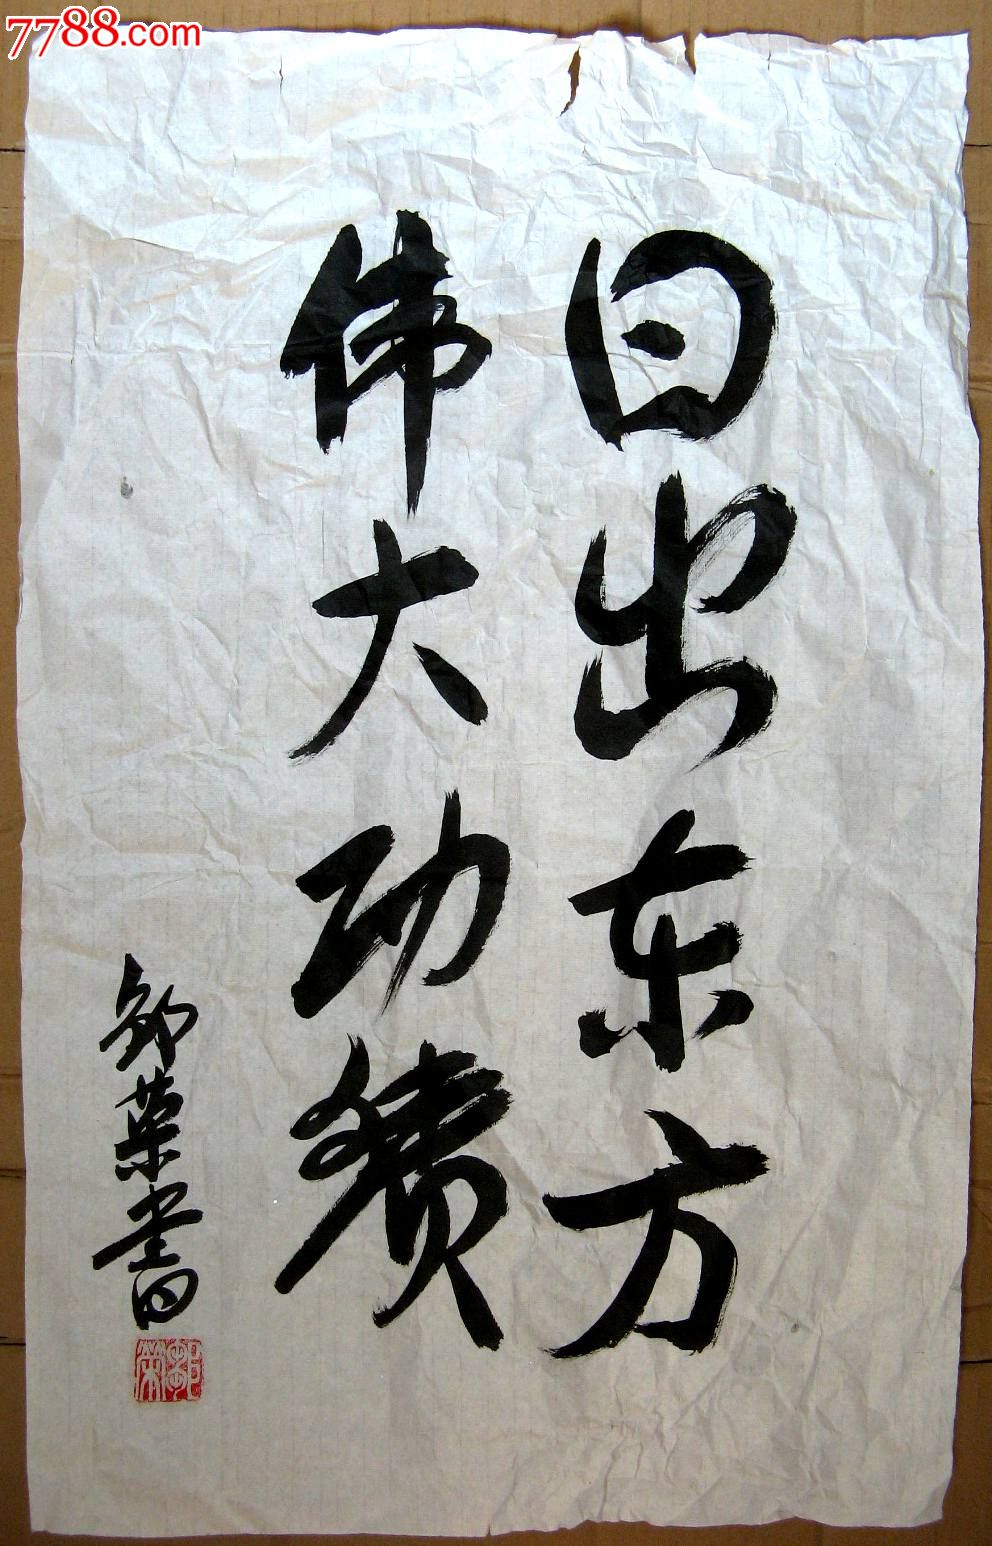 7788.com
日出东方
伟大功绩
邹荣书